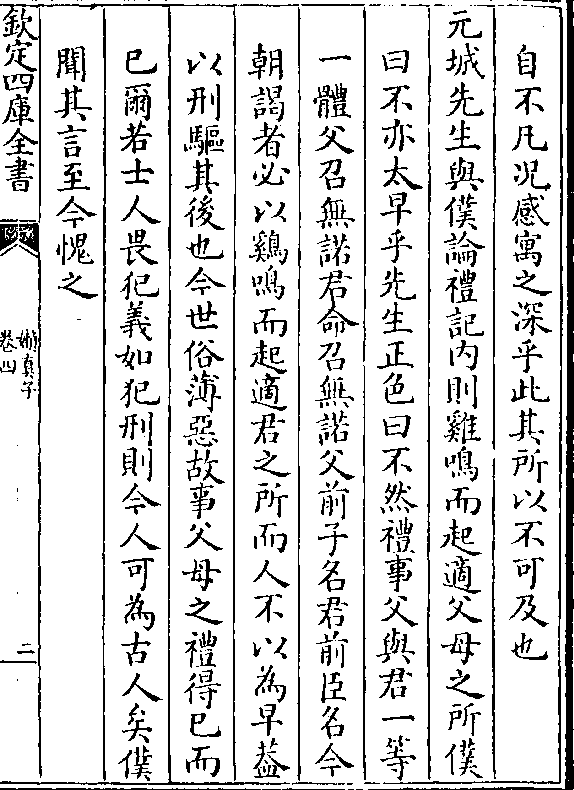 自不凡況感寓之深乎此其所以不可及也
元城先生與僕論禮記内則雞鳴而起適父母之所僕
曰不亦太早乎先生正色曰不然禮事父與君一等
一體父召無諾君命召無諾父前子名君前臣名今
朝謁者必以鷄鳴而起適君之所而人不以為早葢
以刑驅其後也今世俗薄惡故事父母之禮得已而
已爾若士人畏犯義如犯刑則今人可為古人矣僕
聞其言至今愧之
欽定四庫全書
嬾真子
卷四
二